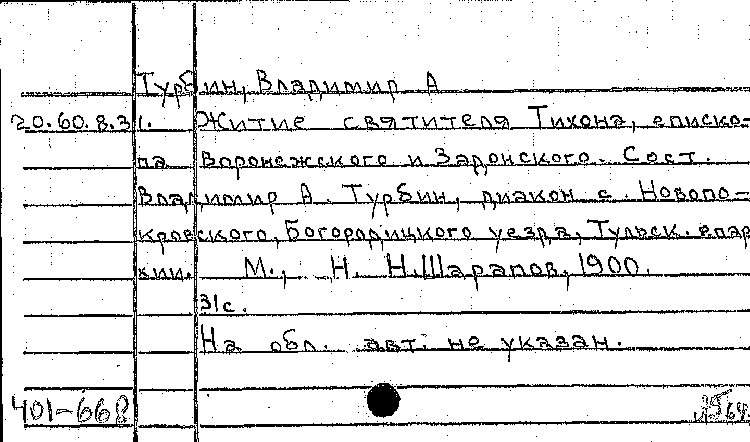 Турбин, Владимир А
20.60.8.31. Житие святителя Тихона, еписко-
па Воронежского и Задонского. Сост.
Владимир А. Турбин, диакон с. Новопо-
кровского, Богородицкого уезда, Тульск. епар
хии. М., Н. Н.Шарапов, 1900.
31с.
На обл. авт. не указан.
401-668